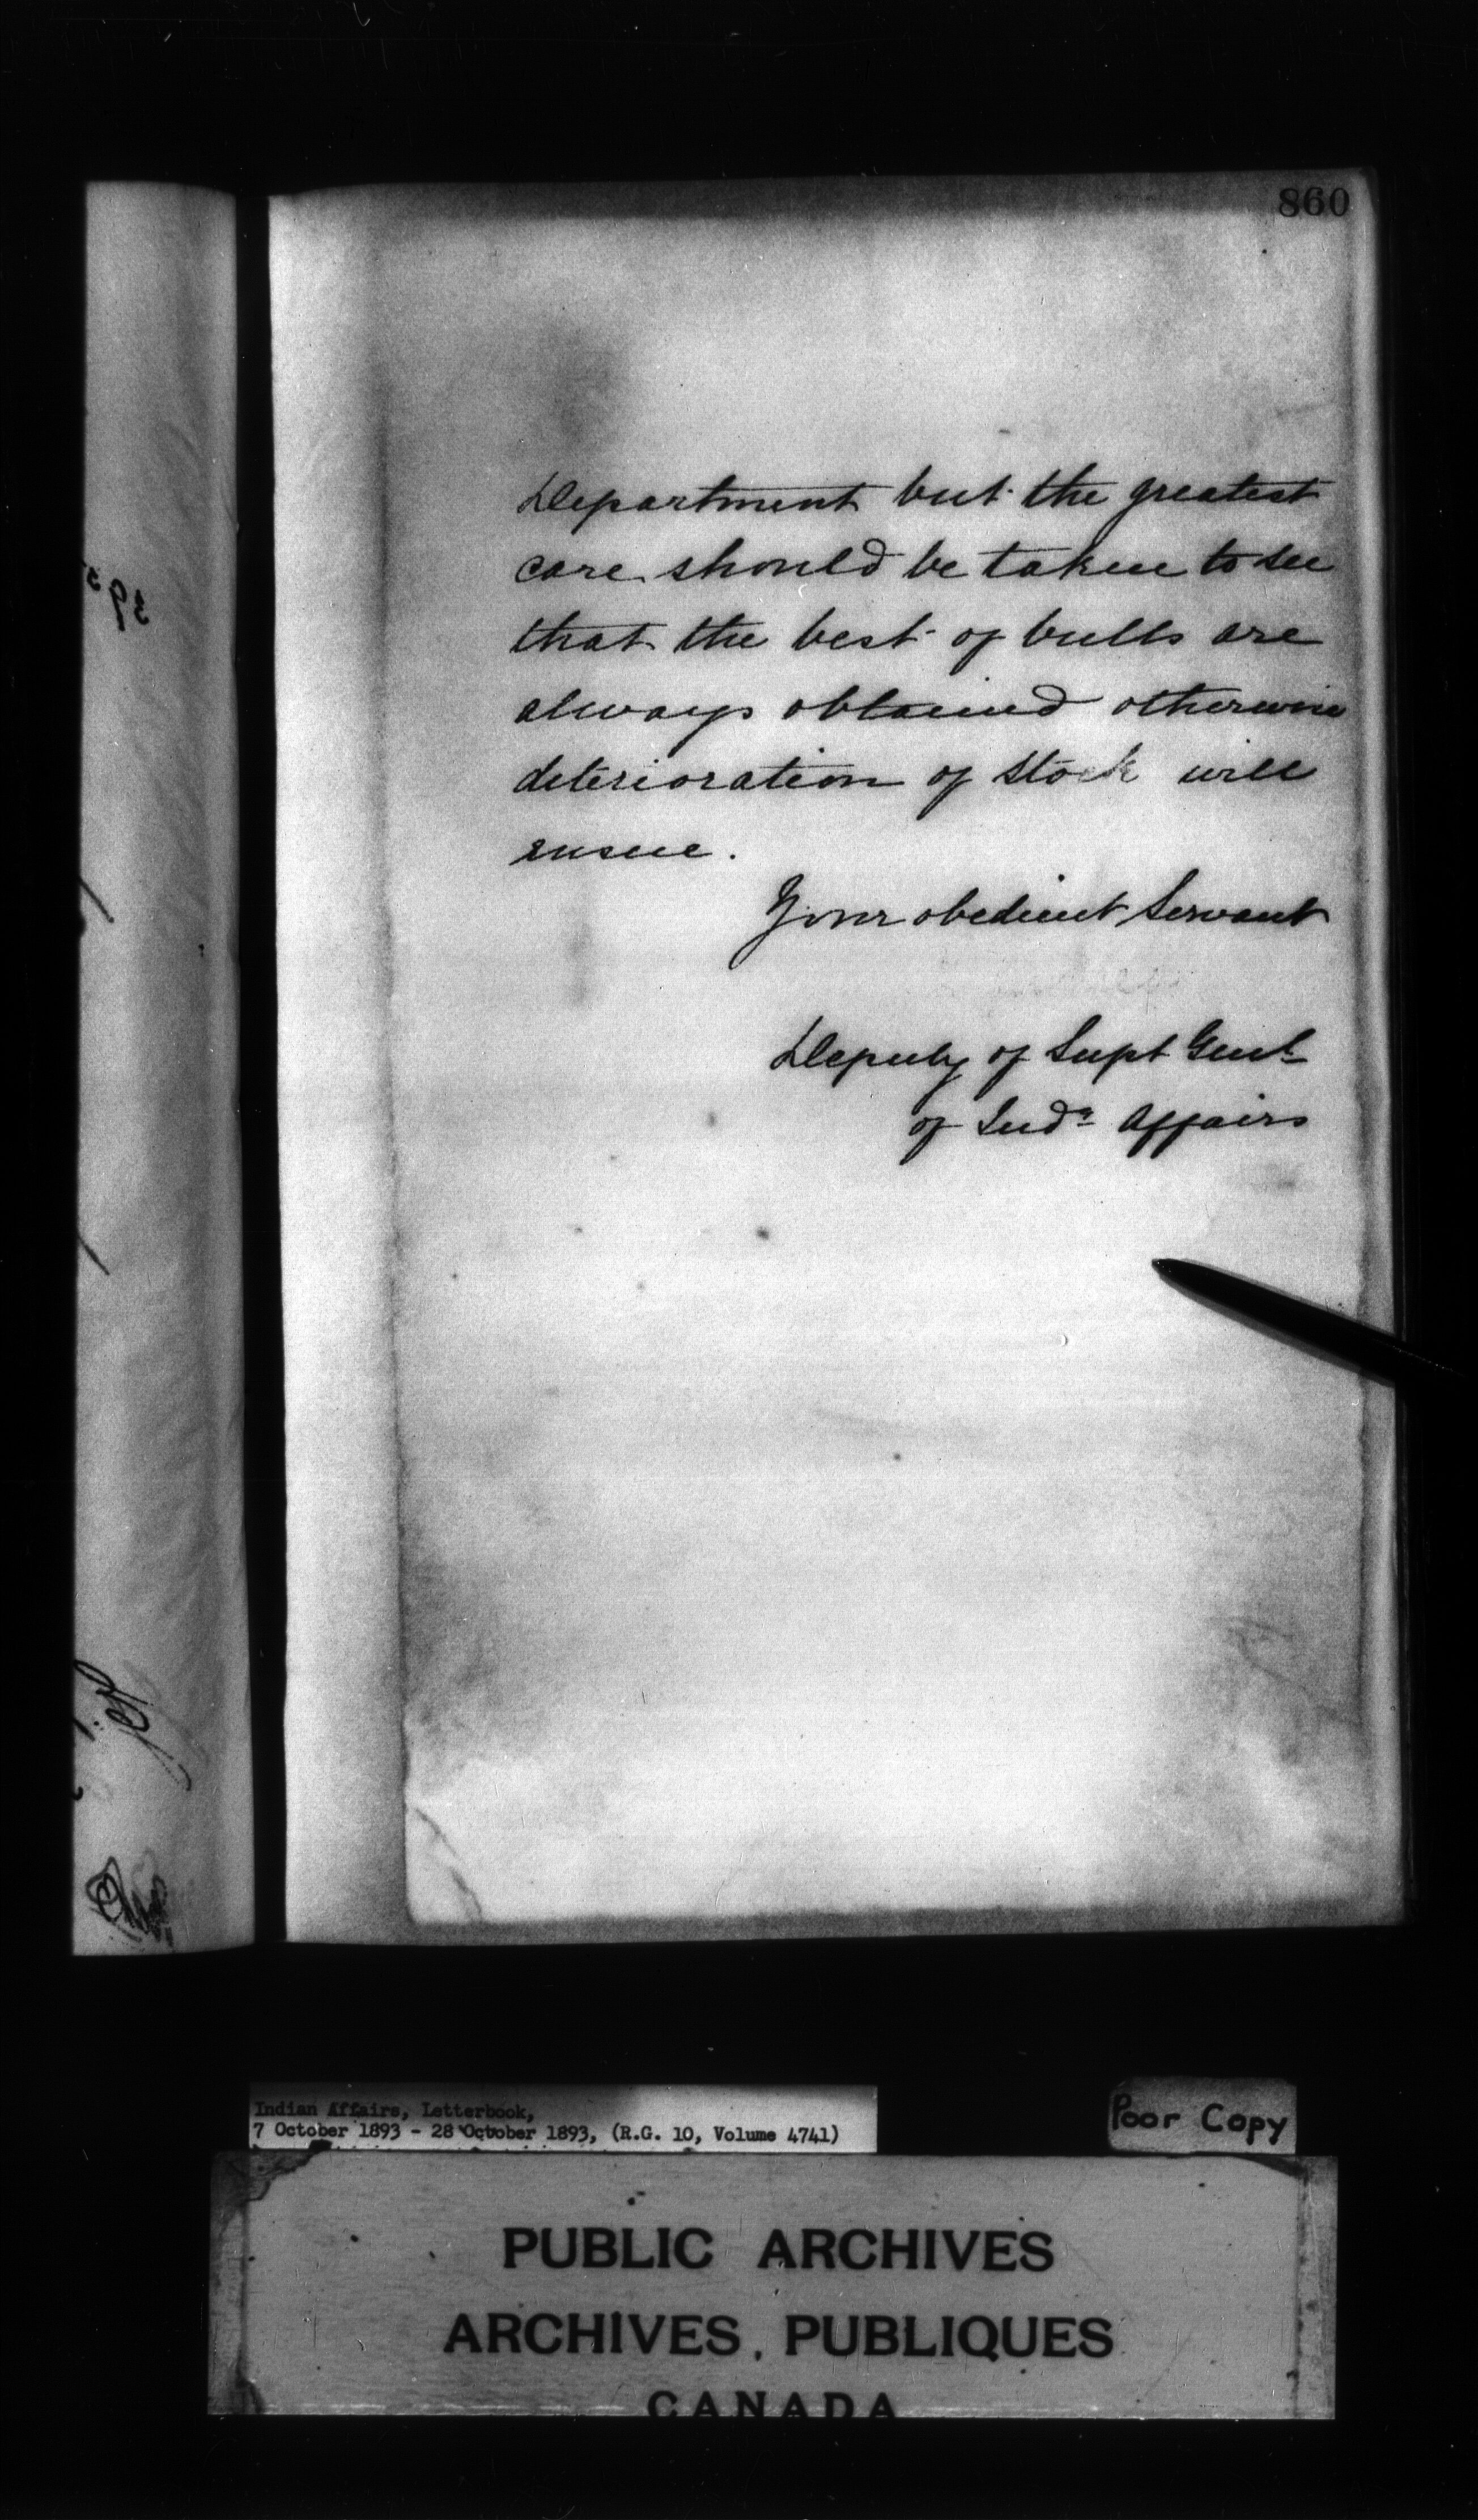 860
Department but the greatest
care should be taken to see
that the best of bulls are
always obtained otherwise
deterioration of stock will
ensue.
Your obedient Servant
Deputy of Supt Genl
of Indn Affairs
Indian Affairs, Letterbook,
7 October 1893 - 28 October 1893, (R.G. 10, Volume 4741)
Poor Copy
PUBLIC ARCHIVES
ARCHIVES PUBLIQUES
CANADA